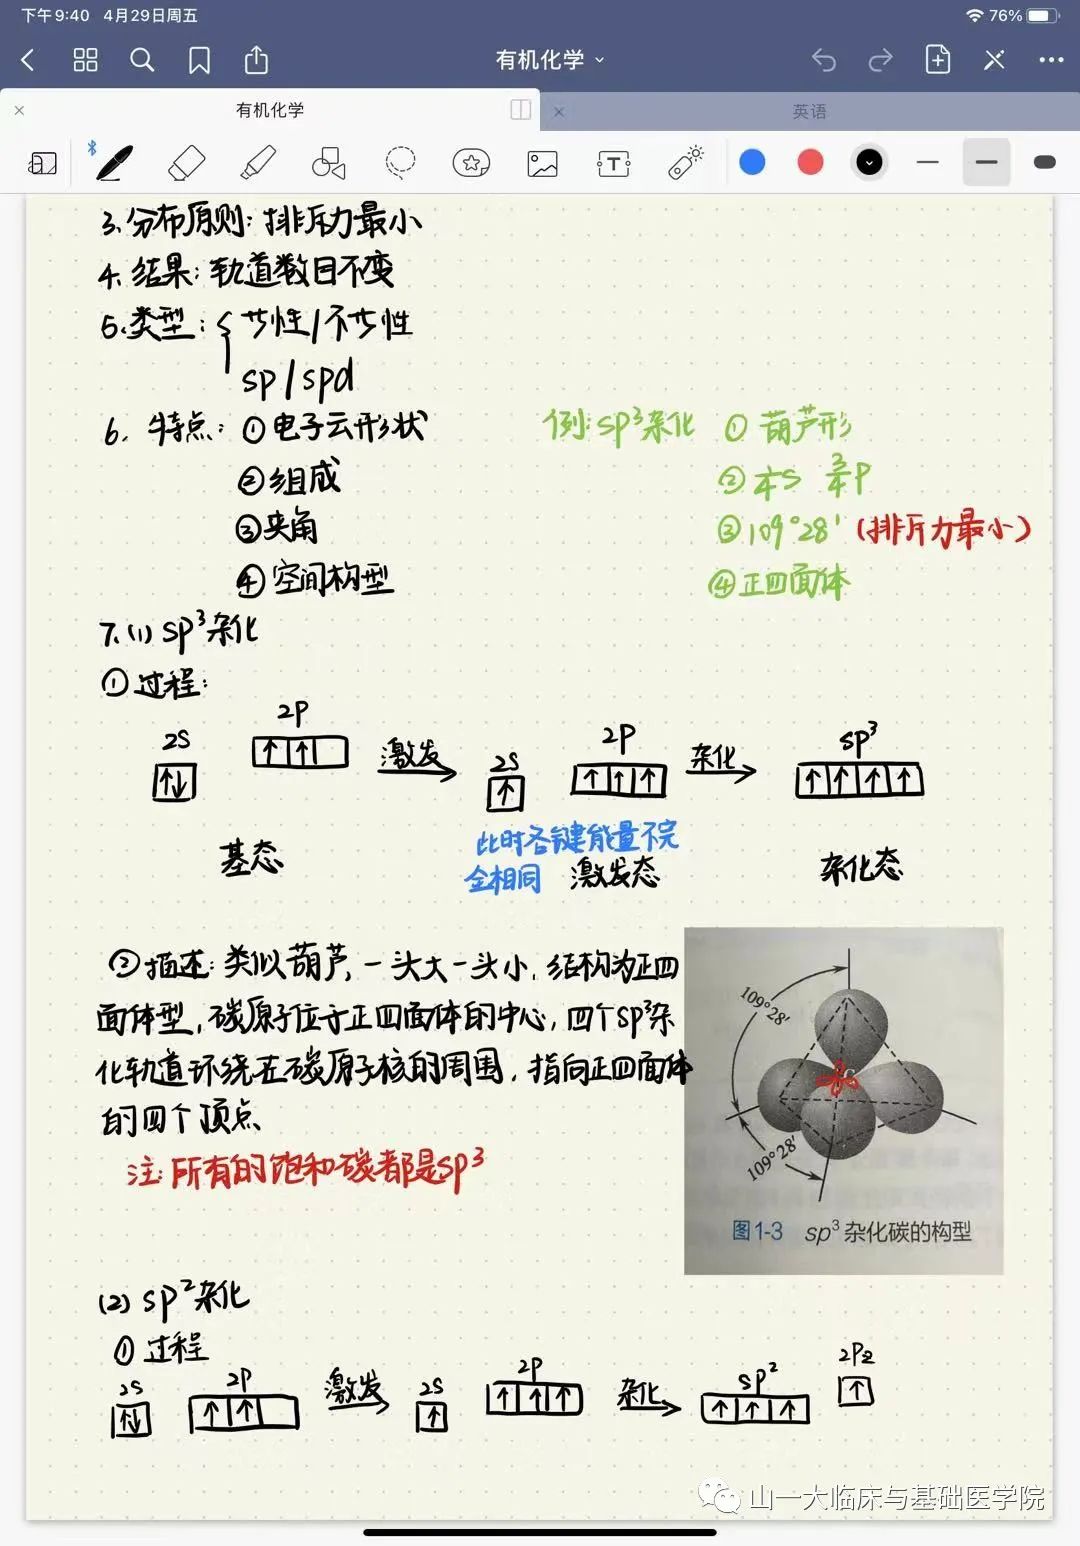 下午9:40 4月29日周五 76%
有机化学
有机化学 英语
3.分布原则:排斥力最小
4.结果:轨道数目不变
5.类型:{ 等性/不等性
sp/spd
6.特点:①电子云形状 例:sp³杂化 ①葫芦形
②组成 ②¼s ¾p
③夹角 ③109°28′(排斥力最小)
④空间构型 ④正四面体
7.(1)sp³杂化
①过程:
2s 2p 激发 2s 2p 杂化 sp³
此时各键能量不完
全相同
基态 激发态 杂化态
②描述:类似葫芦,一头大一头小,结构为正四
面体型,碳原子位于正四面体的中心,四个sp³杂
化轨道环绕在碳原子核的周围,指向正四面体
的四个顶点.
注:所有的饱和碳都是sp³
109°28′
C
109°28′
图1-3 sp³杂化碳的构型
(2)sp²杂化
①过程
2s 2p 激发 2s 2p 杂化 sp² 2pz
山一大临床与基础医学院